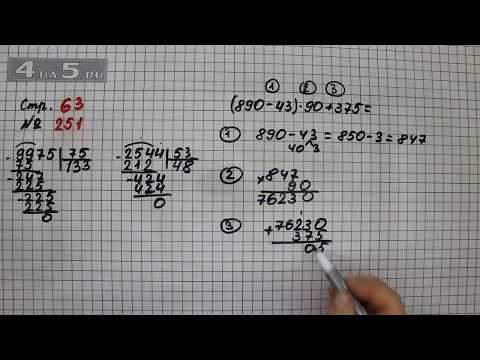 4 DA 5.RU
Стр. 63
№ 251
- 9975 | 75
75 | 133
- 247
225
- 225
225
0
- 2544 | 53
212 | 48
- 424
424
0
① ② ③
(890-43)·90+375=
① 890-43=850-3=847
40 3
② × 847
90
76230
③ 1
+ 76230
375
05